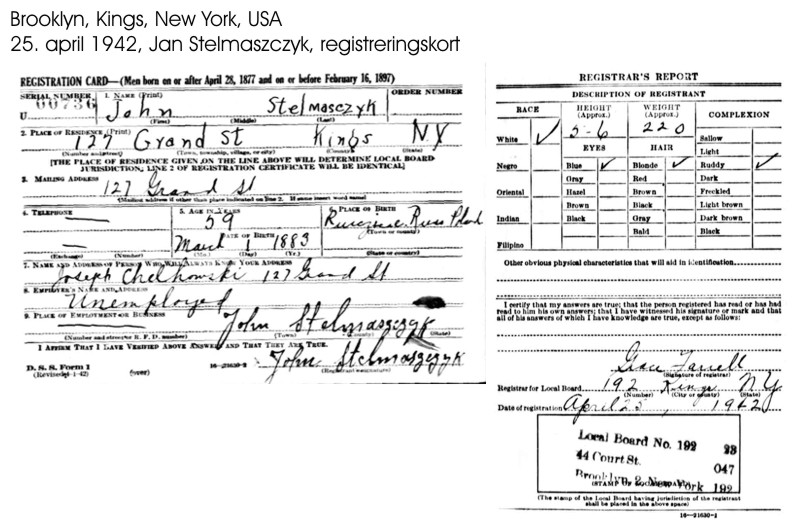 Brooklyn, Kings, New York, USA
25. april 1942, Jan Stelmaszczyk, registreringskort
REGISTRATION CARD—(Men born on or after April 28, 1877 and on or before February 16, 1897)
SERIAL NUMBER 1. NAME (Print) ORDER NUMBER
U 00736 John Stelmasczyk
(First) (Middle) (Last)
2. PLACE OF RESIDENCE (Print)
127 Grand St Kings NY
(Number and street) (Town, township, village, or city) (County) (State)
[THE PLACE OF RESIDENCE GIVEN ON THE LINE ABOVE WILL DETERMINE LOCAL BOARD
JURISDICTION; LINE 2 OF REGISTRATION CERTIFICATE WILL BE IDENTICAL]
3. MAILING ADDRESS
127 Grand St
[Mailing address if other than place indicated on line 2. If same insert word same]
4. TELEPHONE 5. AGE IN YEARS 6. PLACE OF BIRTH
59 Russ Poland
DATE OF BIRTH (Town or county)
March 1 1883
(Exchange) (Number) (Mo.) (Day) (Yr.) (State or country)
7. NAME AND ADDRESS OF PERSON WHO WILL ALWAYS KNOW YOUR ADDRESS
Joseph Chelkowski 127 Grand St
8. EMPLOYER'S NAME AND ADDRESS
Unemployed
9. PLACE OF EMPLOYMENT OR BUSINESS
John Stelmaszczyk
(Number and street or R. F. D. number) (Town) (State)
I AFFIRM THAT I HAVE VERIFIED ABOVE ANSWERS AND THAT THEY ARE TRUE.
John Stelmaszczyk
D. S. S. Form 1 16—21630-2 (Registrant's signature)
(Revised 4-1-42) (over)
REGISTRAR'S REPORT
DESCRIPTION OF REGISTRANT
RACE HEIGHT (Approx.) WEIGHT (Approx.) COMPLEXION
White ✓ 5-6 220 Sallow
EYES HAIR Light
Negro Blue ✓ Blonde ✓ Ruddy ✓
Gray Red Dark
Oriental Hazel Brown Freckled
Brown Black Light brown
Indian Black Gray Dark brown
Bald Black
Filipino
Other obvious physical characteristics that will aid in identification
I certify that my answers are true; that the person registered has read or has had
read to him his own answers; that I have witnessed his signature or mark and that
all of his answers of which I have knowledge are true, except as follows:
Grace Farrell
(Signature of registrar)
Registrar for Local Board 192 Kings N Y
(Number) (City or county) (State)
Date of registration April 25, 1942
Local Board No. 192 23
44 Court St. 047
Brooklyn, New York 192
(STAMP OF LOCAL BOARD)
(The stamp of the Local Board having jurisdiction of the registrant
shall be placed in the above space)
16—21630-1